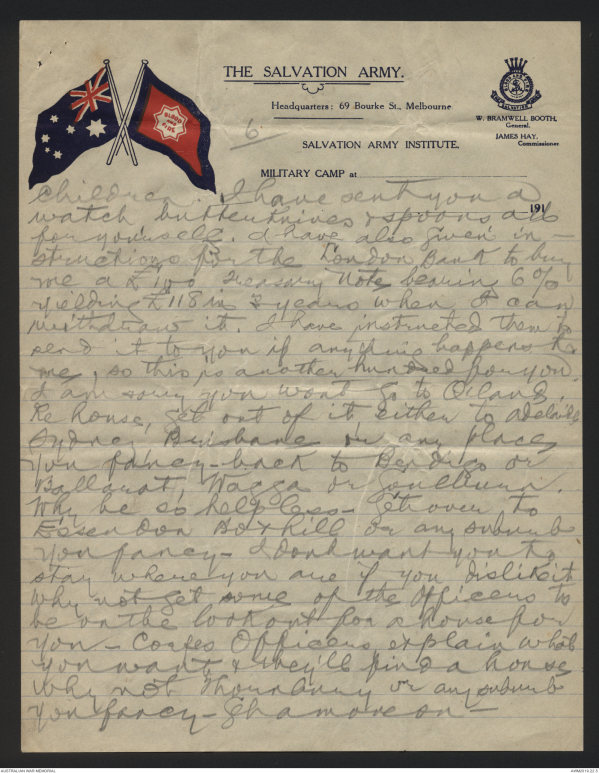 THE SALVATION ARMY.
Headquarters: 69 Bourke St., Melbourne
6
SALVATION ARMY INSTITUTE,
MILITARY CAMP at
191
BLOOD AND FIRE
W. BRAMWELL BOOTH,
General.
JAMES HAY,
Commissioner.
children. I have sent you a
watch butter knives & spoons all
for yourself. I have also given in-
structions for the London Bank to buy
me a £100 Treasury Note bearing 6%
yielding £118 in 3 years when I can
withdraw it. I have instructed them to
send it to you if anything happens to
me, so this is another hundred for you
I am sorry you wont go to
Re house, get out of it either to Adelaide
Sydney Brisbane or any place
you fancy - back to Bendigo or
Ballarat, Wagga or Goulburn.
Why be so helpless - get over to
Essendon Box Hill or any suburb
you fancy - I dont want you to
stay where you are if you dislike it
Why not get some of the Officers to
be on the lookout for a house for
you - Corps Officers, explain what
you want & they'll find a house
Why not Thornbury or any suburb
you fancy -
AUSTRALIAN WAR MEMORIAL